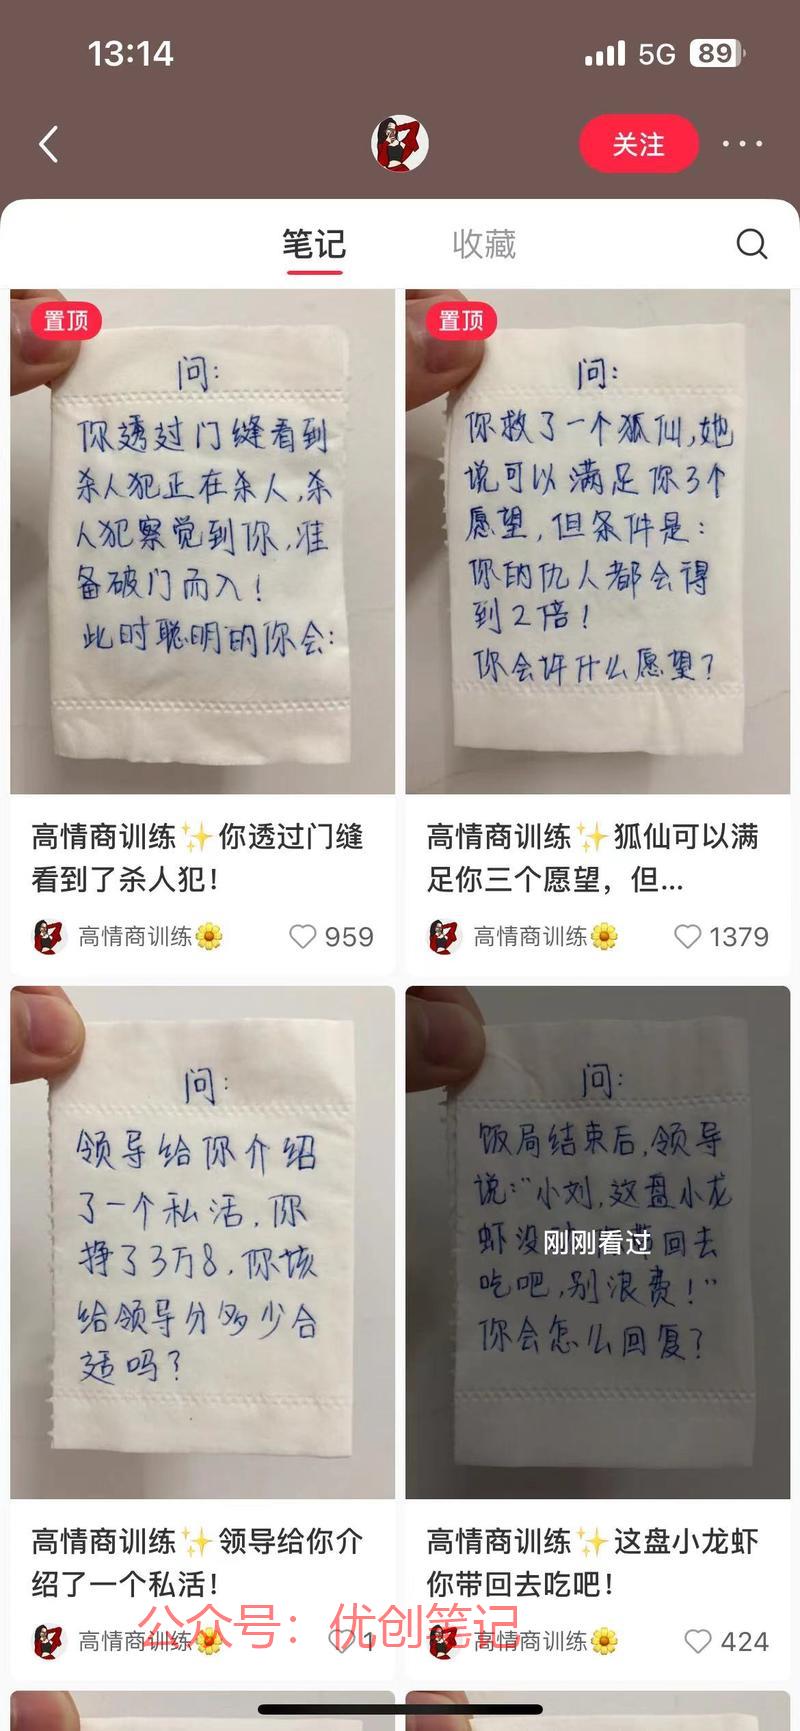 13:14
5G 89
关注
笔记
收藏
置顶
问:
你透过门缝看到
杀人犯正在杀人,杀
人犯察觉到你,准
备破门而入!
此时聪明的你会:
高情商训练✨你透过门缝
看到了杀人犯!
高情商训练🌼
959
置顶
问:
你救了一个狐仙,她
说可以满足你3个
愿望,但条件是:
你的仇人都会得
到2倍!
你会许什么愿望?
高情商训练✨狐仙可以满
足你三个愿望，但...
高情商训练🌼
1379
问:
领导给你介绍
了一个私活,你
挣了3万8,你该
给领导分多少合
适吗?
高情商训练✨领导给你介
绍了一个私活!
高情商训练🌼
1
问:
饭局结束后,领导
说:"小刘,这盘小龙
虾没 回去
吃吧,别浪费!"
你会怎么回复?
刚刚看过
高情商训练✨这盘小龙虾
你带回去吃吧!
高情商训练🌼
424
公众号：优创笔记